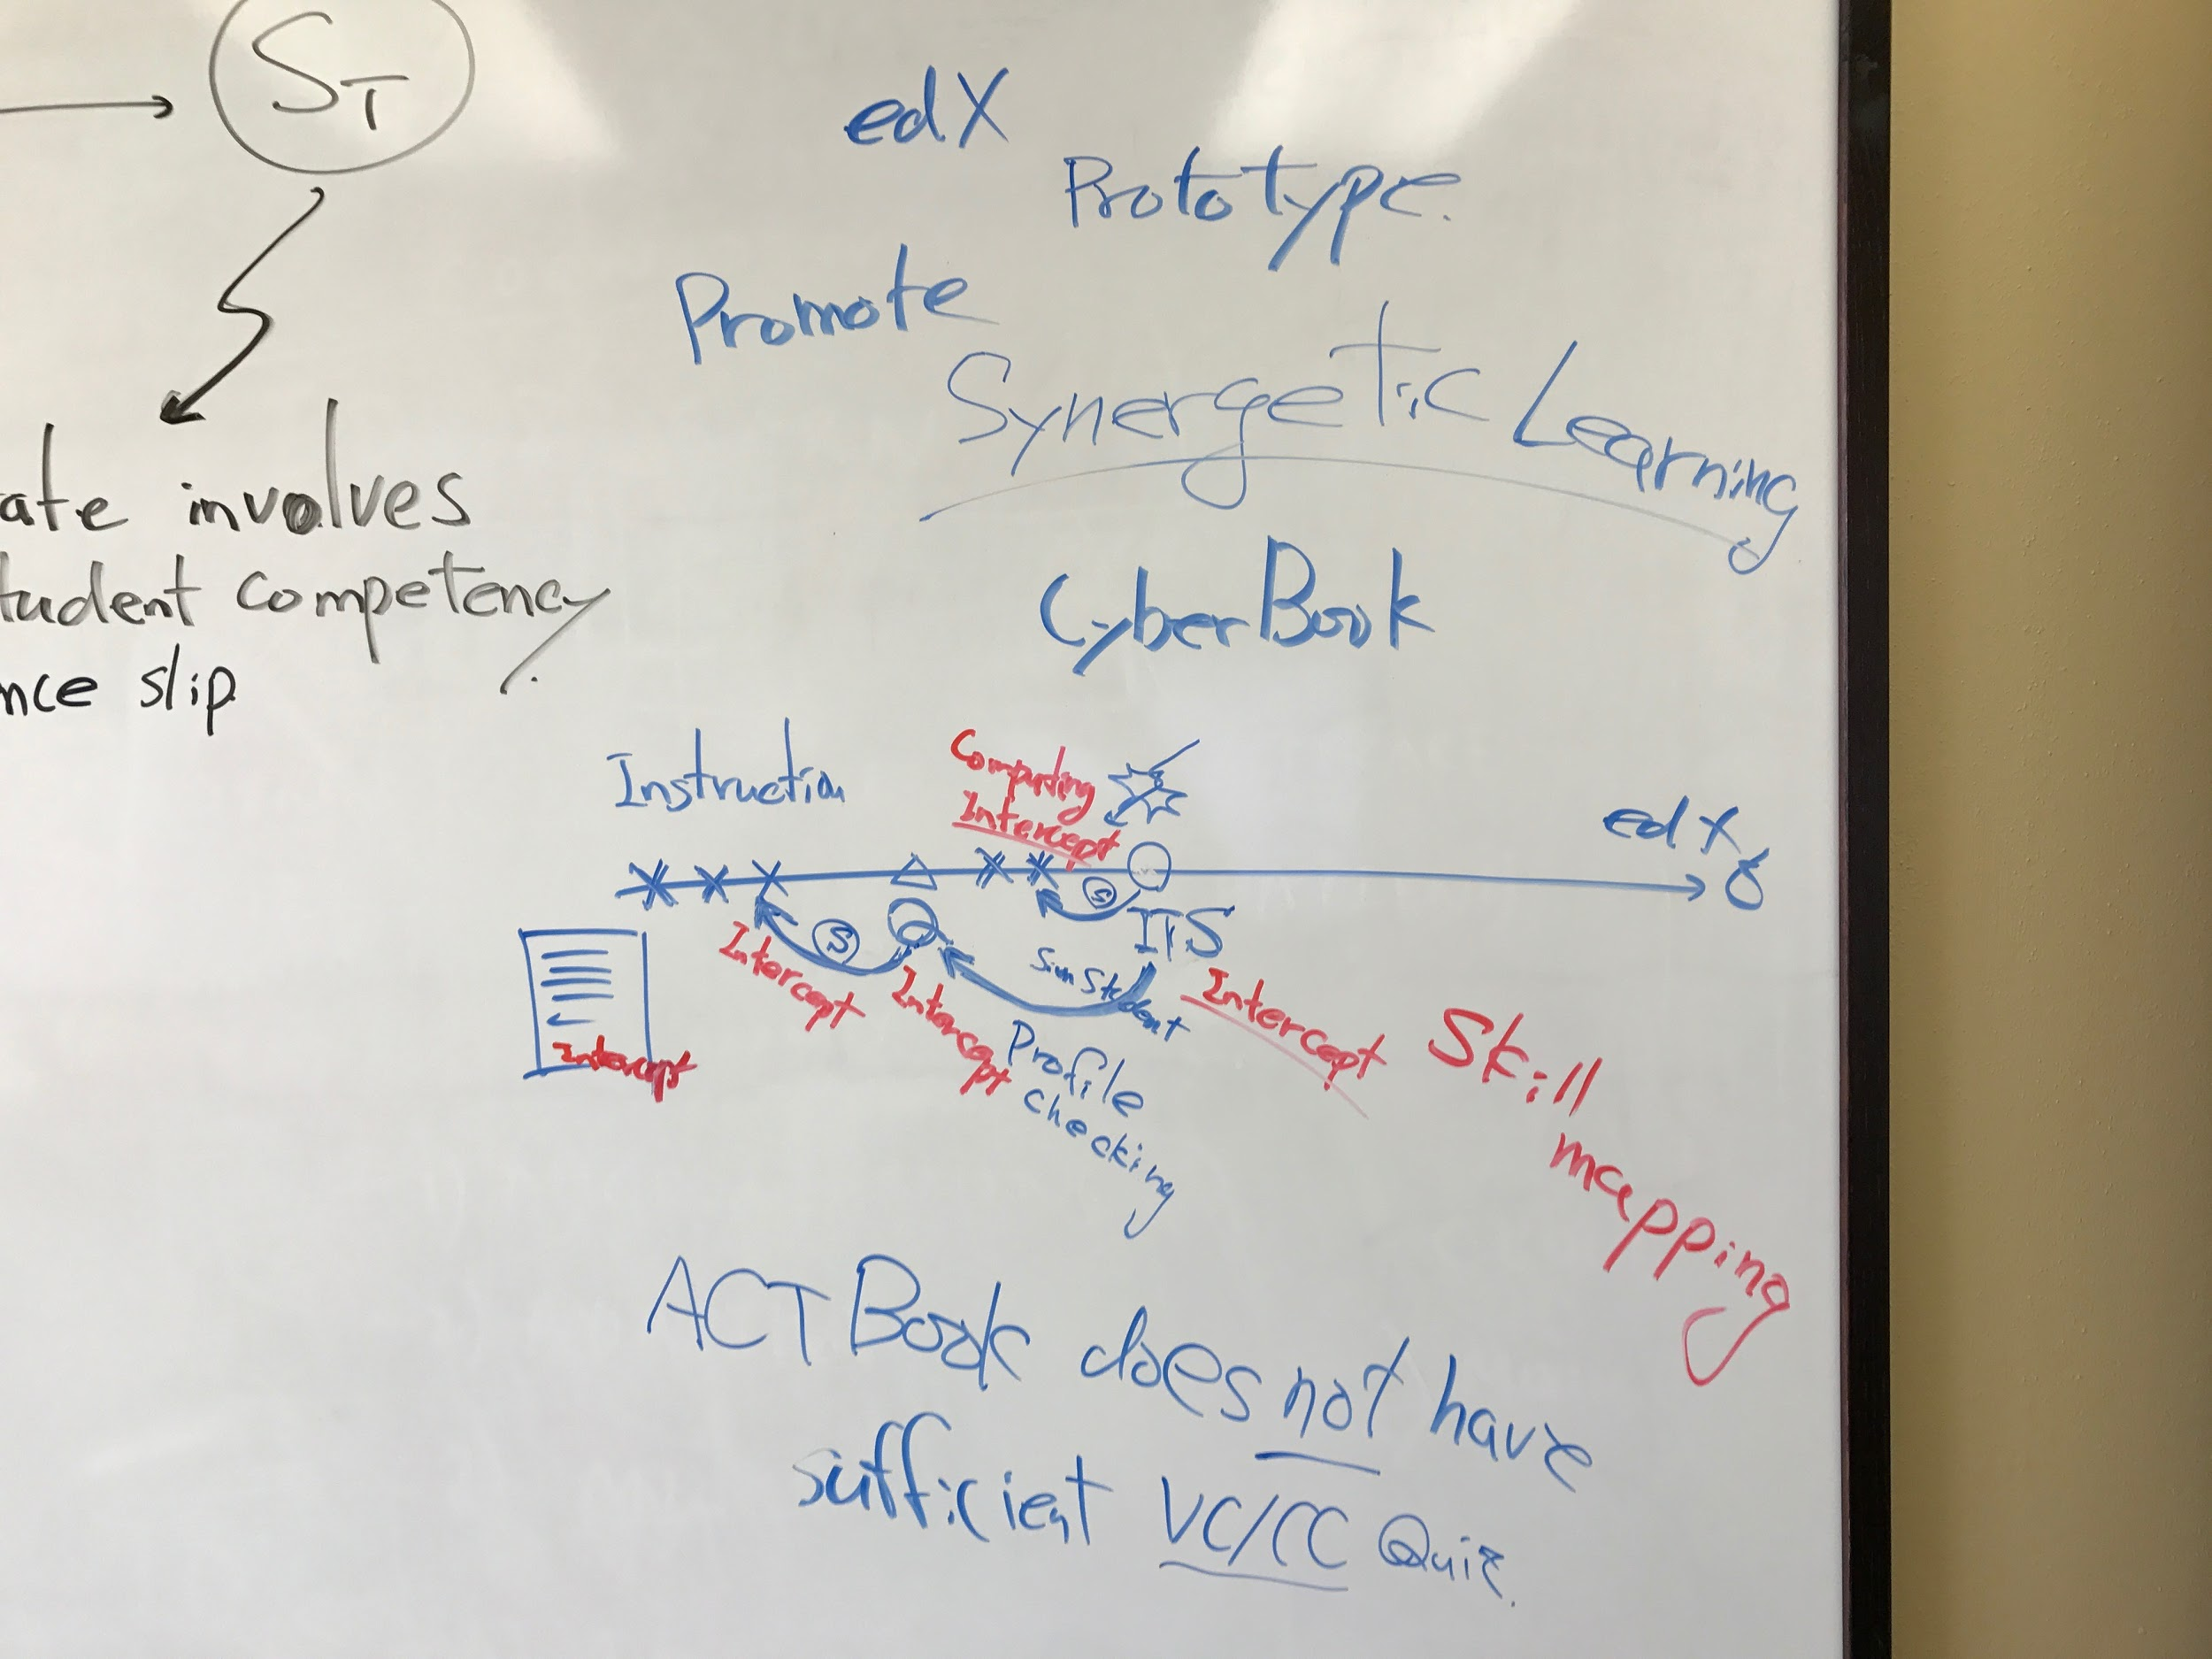 ST
ate involves
tudent competency
nce slip
edX
Prototype.
Promote
Synergetic Learning
CyberBook
Instruction
Computing
Intercept
edX
S
S
ITS
SimStudent
Intercept
Intercept
Intercept
Intercept
Profile
checking
Skill
mapping
ACT Book does not have
sufficient VC/CC Quiz.